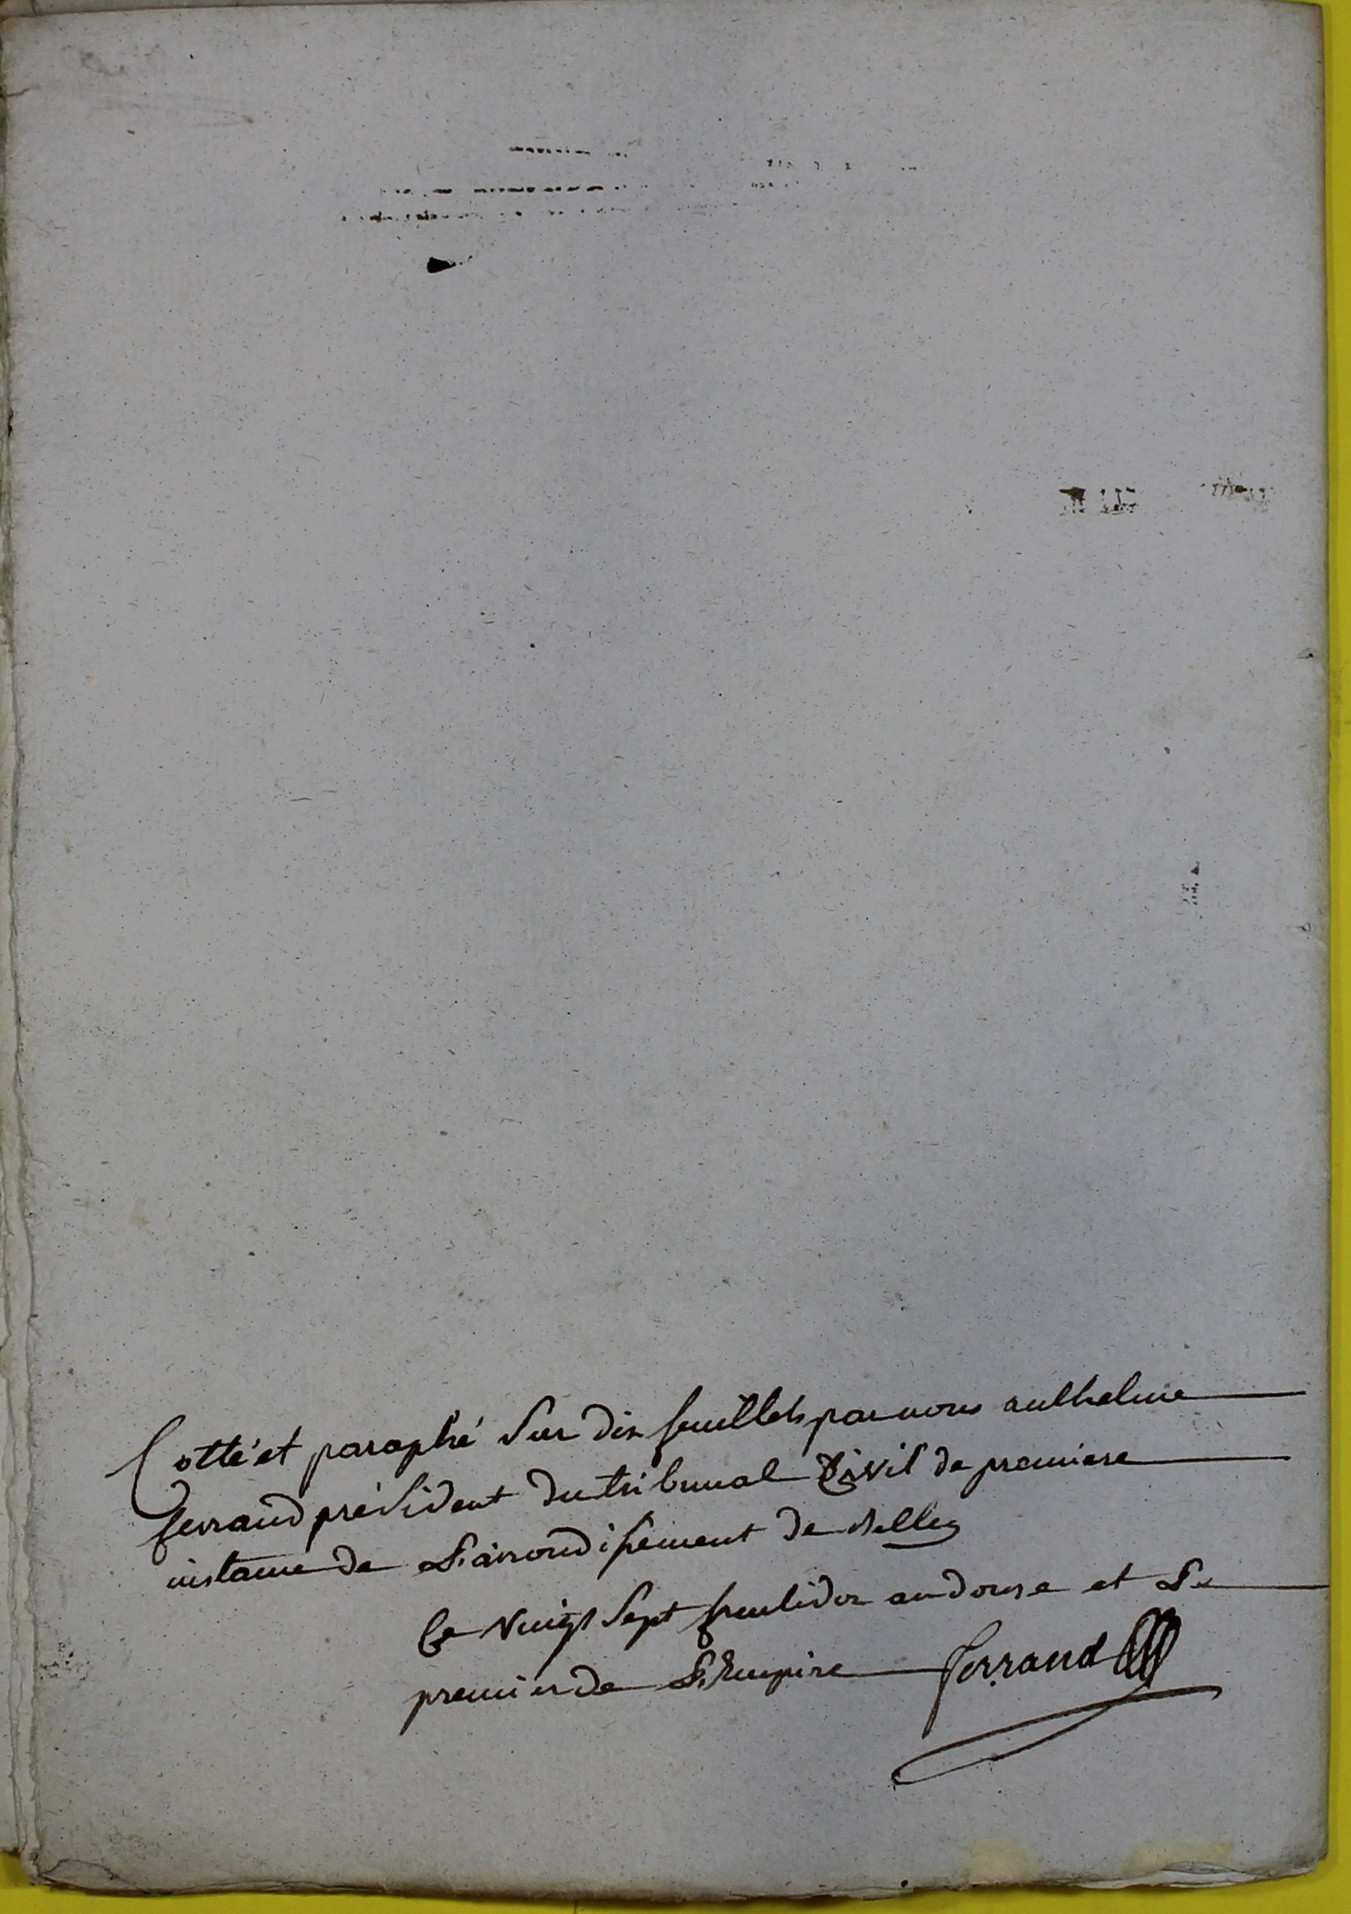 Cotté et paraphé Sur dix feuillets par nous anthelme
ferrand président du tribunal Civil de premiere
instance de L'arrondissement de Belley
Ce vingt Sept fructidor an douze et Le
premier de L'Empire ferrand